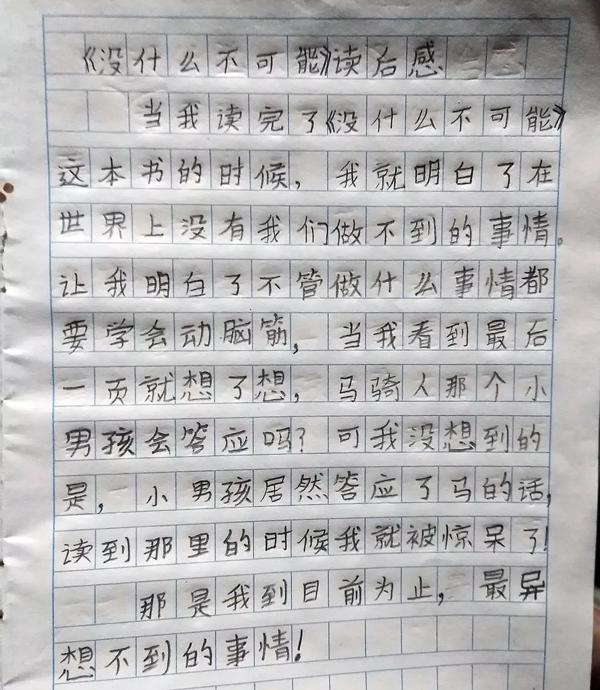 《没什么不可能》读后感
当我读完了《没什么不可能》
这本书的时候，我就明白了在
世界上没有我们做不到的事情。
让我明白了不管做什么事情都
要学会动脑筋，当我看到最后
一页就想了想，马骑人那个小
男孩会答应吗？可我没想到的
是，小男孩居然答应了马的话，
读到那里的时候我就被惊呆了！
那是我到目前为止，最异
想不到的事情！